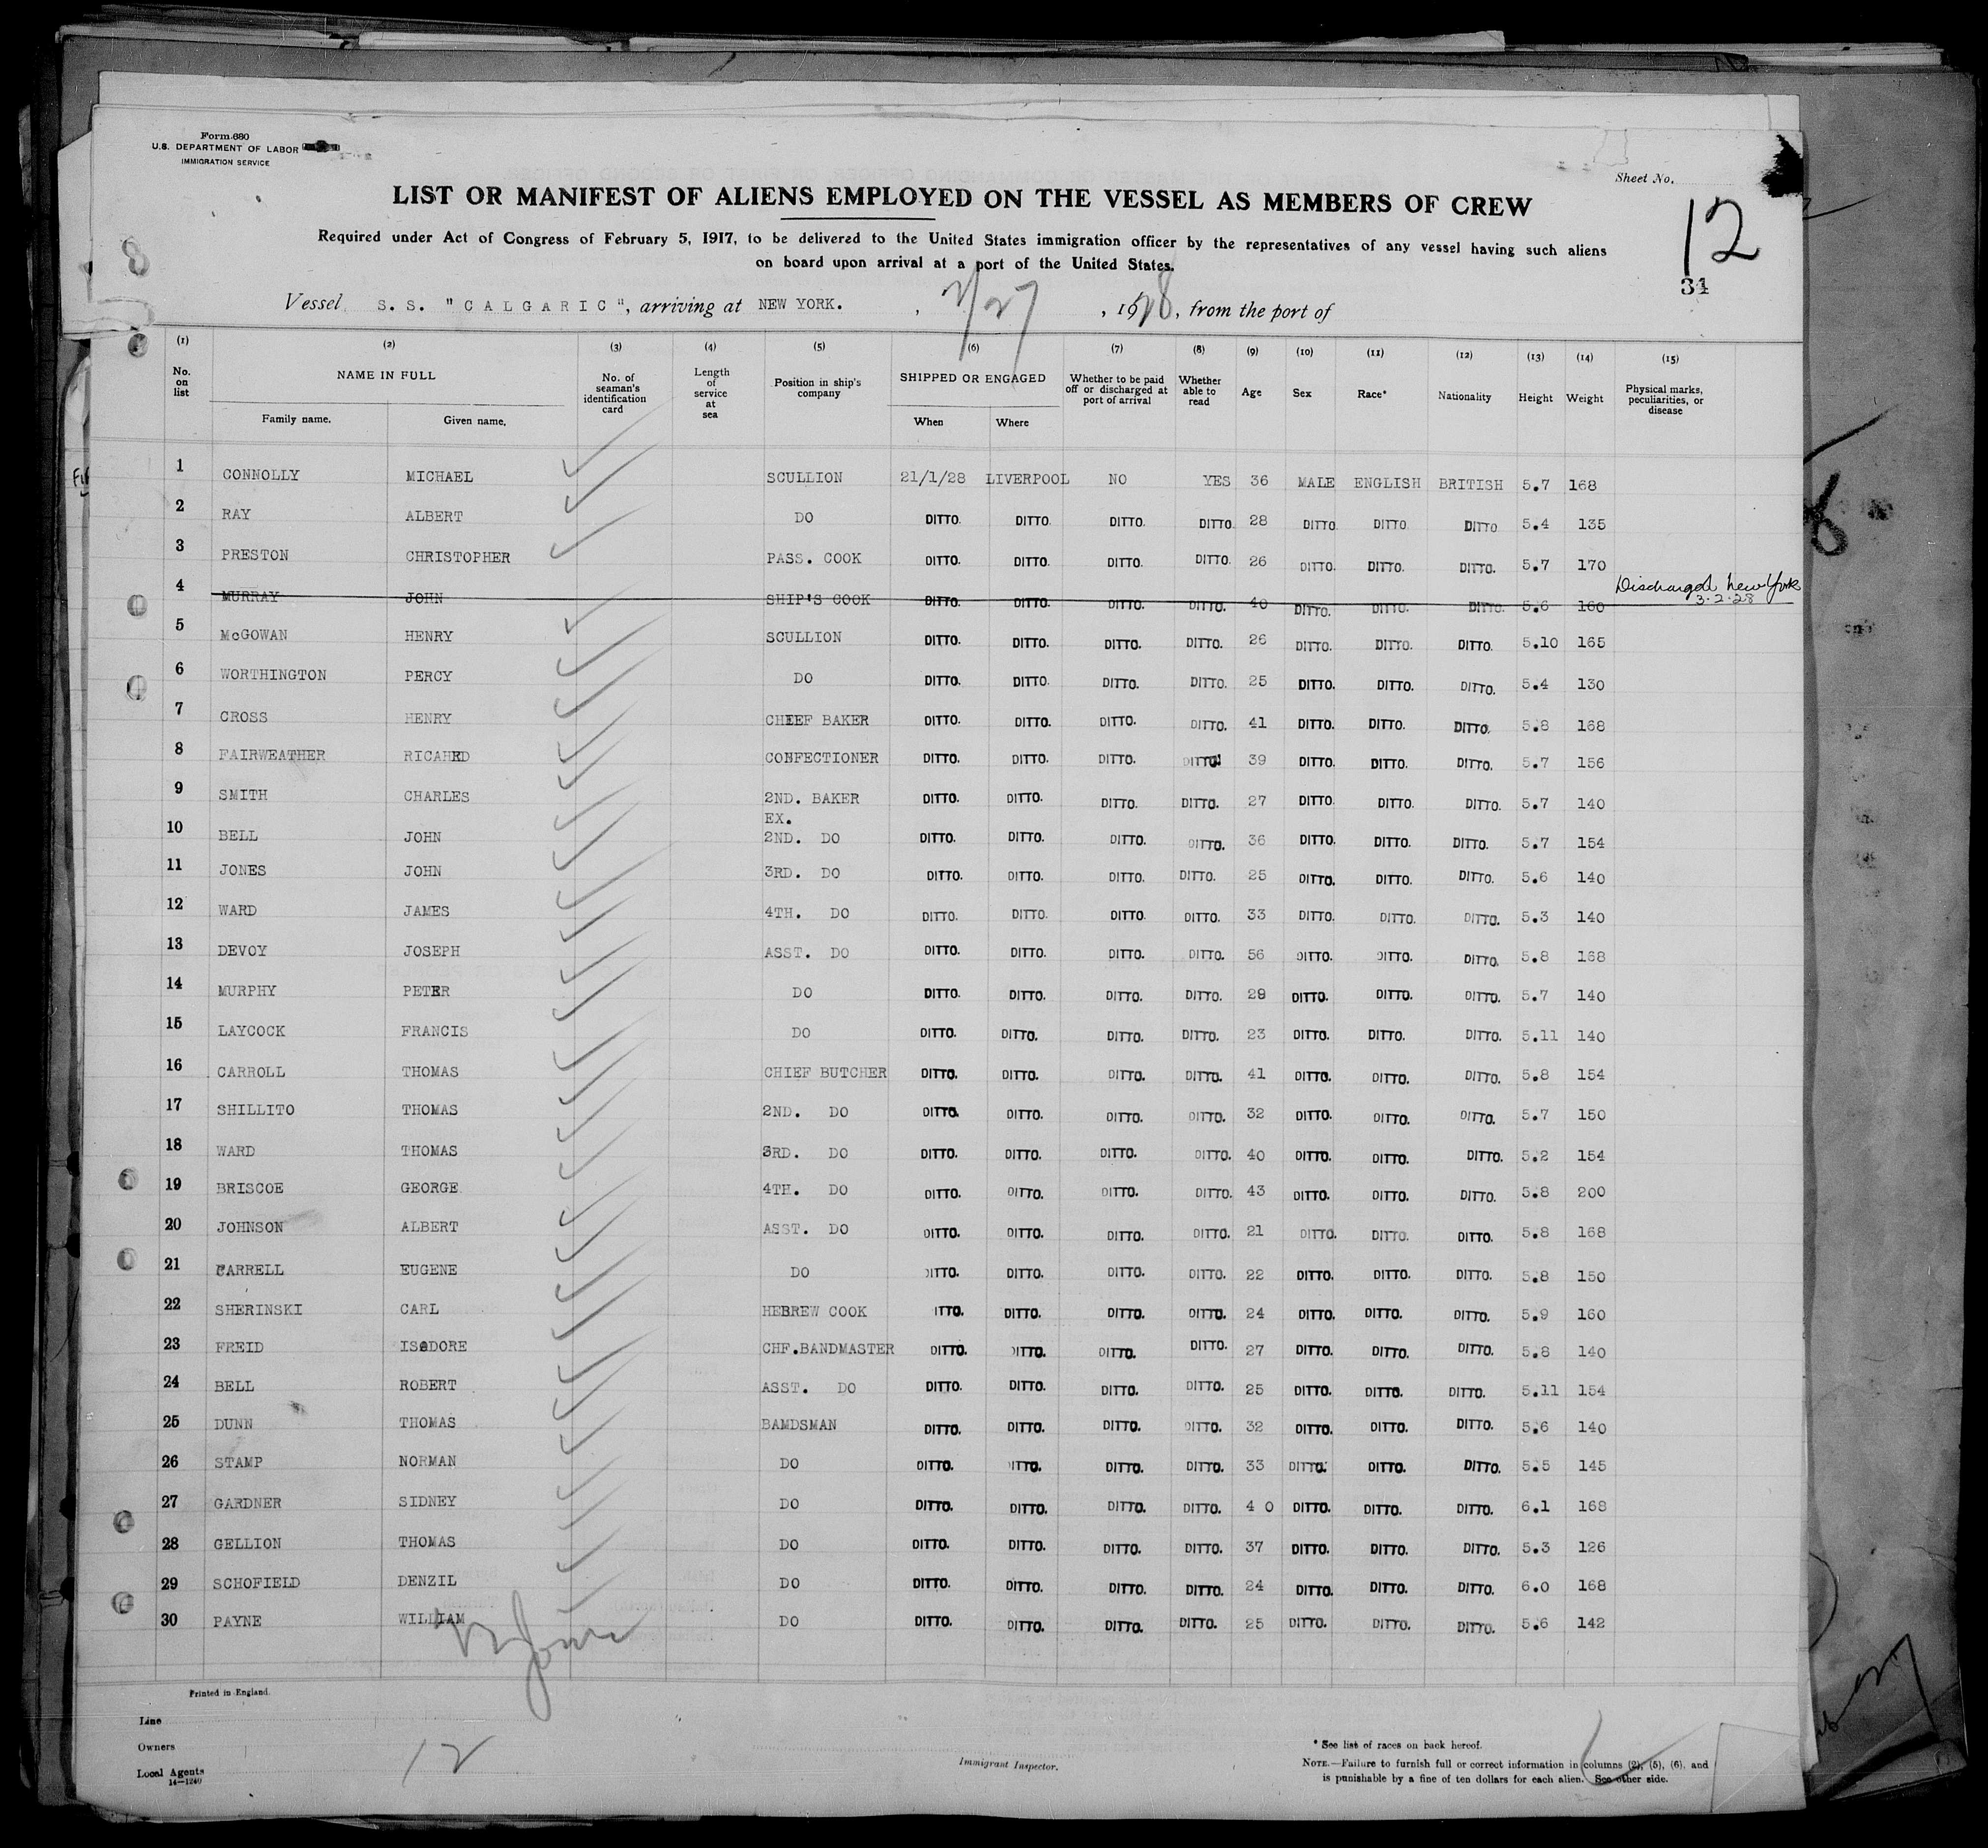 Form 680
U.S. DEPARTMENT OF LABOR
IMMIGRATION SERVICE
Sheet No.
12
34
LIST OR MANIFEST OF ALIENS EMPLOYED ON THE VESSEL AS MEMBERS OF CREW
Required under Act of Congress of February 5, 1917, to be delivered to the United States immigration officer by the representatives of any vessel having such aliens
on board upon arrival at a port of the United States.
Vessel S. S. "CALGARIC", arriving at NEW YORK. , 2/27 , 1928, from the port of
(1) (2) (3) (4) (5) (6) (7) (8) (9) (10) (11) (12) (13) (14) (15)
No. on list NAME IN FULL Family name. Given name. No. of seaman's identification card Length of service at sea Position in ship's company SHIPPED OR ENGAGED When Where Whether to be paid off or discharged at port of arrival Whether able to read Age Sex Race* Nationality Height Weight Physical marks, peculiarities, or disease
1 CONNOLLY MICHAEL SCULLION 21/1/28 LIVERPOOL NO YES 36 MALE ENGLISH BRITISH 5.7 168
2 RAY ALBERT DO DITTO. DITTO. DITTO. DITTO. 28 DITTO. DITTO. DITTO 5.4 135
3 PRESTON CHRISTOPHER PASS. COOK DITTO. DITTO. DITTO. DITTO. 26 DITTO. DITTO. DITTO. 5.7 170
4 MURRAY JOHN SHIP'S COOK DITTO. DITTO. DITTO. DITTO. 40 DITTO. DITTO. DITTO. 5.6 160 Discharged New York 3.2.28
5 McGOWAN HENRY SCULLION DITTO. DITTO. DITTO. DITTO. 26 DITTO. DITTO. DITTO. 5.10 165
6 WORTHINGTON PERCY DO DITTO. DITTO. DITTO. DITTO. 25 DITTO. DITTO. DITTO. 5.4 130
7 CROSS HENRY CHIEF BAKER DITTO. DITTO. DITTO. DITTO. 41 DITTO. DITTO. DITTO. 5.8 168
8 FAIRWEATHER RICAHRD CONFECTIONER DITTO. DITTO. DITTO. DITTO. 39 DITTO. DITTO. DITTO. 5.7 156
9 SMITH CHARLES 2ND. BAKER DITTO. DITTO. DITTO. DITTO. 27 DITTO. DITTO. DITTO. 5.7 140
EX.
10 BELL JOHN 2ND. DO DITTO. DITTO. DITTO. DITTO. 36 DITTO. DITTO. DITTO. 5.7 154
11 JONES JOHN 3RD. DO DITTO. DITTO. DITTO. DITTO. 25 DITTO. DITTO. DITTO. 5.6 140
12 WARD JAMES 4TH. DO DITTO. DITTO. DITTO. DITTO. 33 DITTO. DITTO. DITTO. 5.3 140
13 DEVOY JOSEPH ASST. DO DITTO. DITTO. DITTO. DITTO. 56 DITTO. DITTO. DITTO. 5.8 168
14 MURPHY PETER DO DITTO. DITTO. DITTO. DITTO. 29 DITTO. DITTO. DITTO. 5.7 140
15 LAYCOCK FRANCIS DO DITTO. DITTO. DITTO. DITTO. 23 DITTO. DITTO. DITTO. 5.11 140
16 CARROLL THOMAS CHIEF BUTCHER DITTO. DITTO. DITTO. DITTO. 41 DITTO. DITTO. DITTO. 5.8 154
17 SHILLITO THOMAS 2ND. DO DITTO. DITTO. DITTO. DITTO. 32 DITTO. DITTO. DITTO. 5.7 150
18 WARD THOMAS 3RD. DO DITTO. DITTO. DITTO. DITTO. 40 DITTO. DITTO. DITTO. 5.2 154
19 BRISCOE GEORGE 4TH. DO DITTO. DITTO. DITTO. DITTO. 43 DITTO. DITTO. DITTO. 5.8 200
20 JOHNSON ALBERT ASST. DO DITTO. DITTO. DITTO. DITTO. 21 DITTO. DITTO. DITTO. 5.8 168
21 FARRELL EUGENE DO DITTO. DITTO. DITTO. DITTO. 22 DITTO. DITTO. DITTO. 5.8 150
22 SHERINSKI CARL HEBREW COOK DITTO. DITTO. DITTO. DITTO. 24 DITTO. DITTO. DITTO. 5.9 160
23 FREID ISADORE CHF.BANDMASTER DITTO. DITTO. DITTO. DITTO. 27 DITTO. DITTO. DITTO. 5.8 140
24 BELL ROBERT ASST. DO DITTO. DITTO. DITTO. DITTO. 25 DITTO. DITTO. DITTO. 5.11 154
25 DUNN THOMAS BAMDSMAN DITTO. DITTO. DITTO. DITTO. 32 DITTO. DITTO. DITTO. 5.6 140
26 STAMP NORMAN DO DITTO. DITTO. DITTO. DITTO. 33 DITTO. DITTO. DITTO. 5.5 145
27 GARDNER SIDNEY DO DITTO. DITTO. DITTO. DITTO. 4 0 DITTO. DITTO. DITTO. 6.1 168
28 GELLION THOMAS DO DITTO. DITTO. DITTO. DITTO. 37 DITTO. DITTO. DITTO. 5.3 126
29 SCHOFIELD DENZIL DO DITTO. DITTO. DITTO. DITTO. 24 DITTO. DITTO. DITTO. 6.0 168
30 PAYNE WILLIAM DO DITTO. DITTO. DITTO. DITTO. 25 DITTO. DITTO. DITTO. 5.6 142
Printed in England.
Line
Owners
Local Agents
14—1240
12
Immigrant Inspector.
* See list of races on back hereof.
NOTE.—Failure to furnish full or correct information in columns (2), (5), (6), and
is punishable by a fine of ten dollars for each alien. See other side.